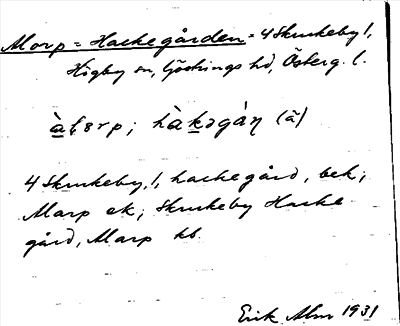 Marp = Hackegården = 4 Skrukeby 1,
Högby sn, Göstrings hd, Österg. l.
hàkǝgàṇ (ā)
4 Skrukeby, 1, hackegård, bek;
Marp ek; Skrukeby Hacke
gård, Marp kb.
Erik Alm 1931